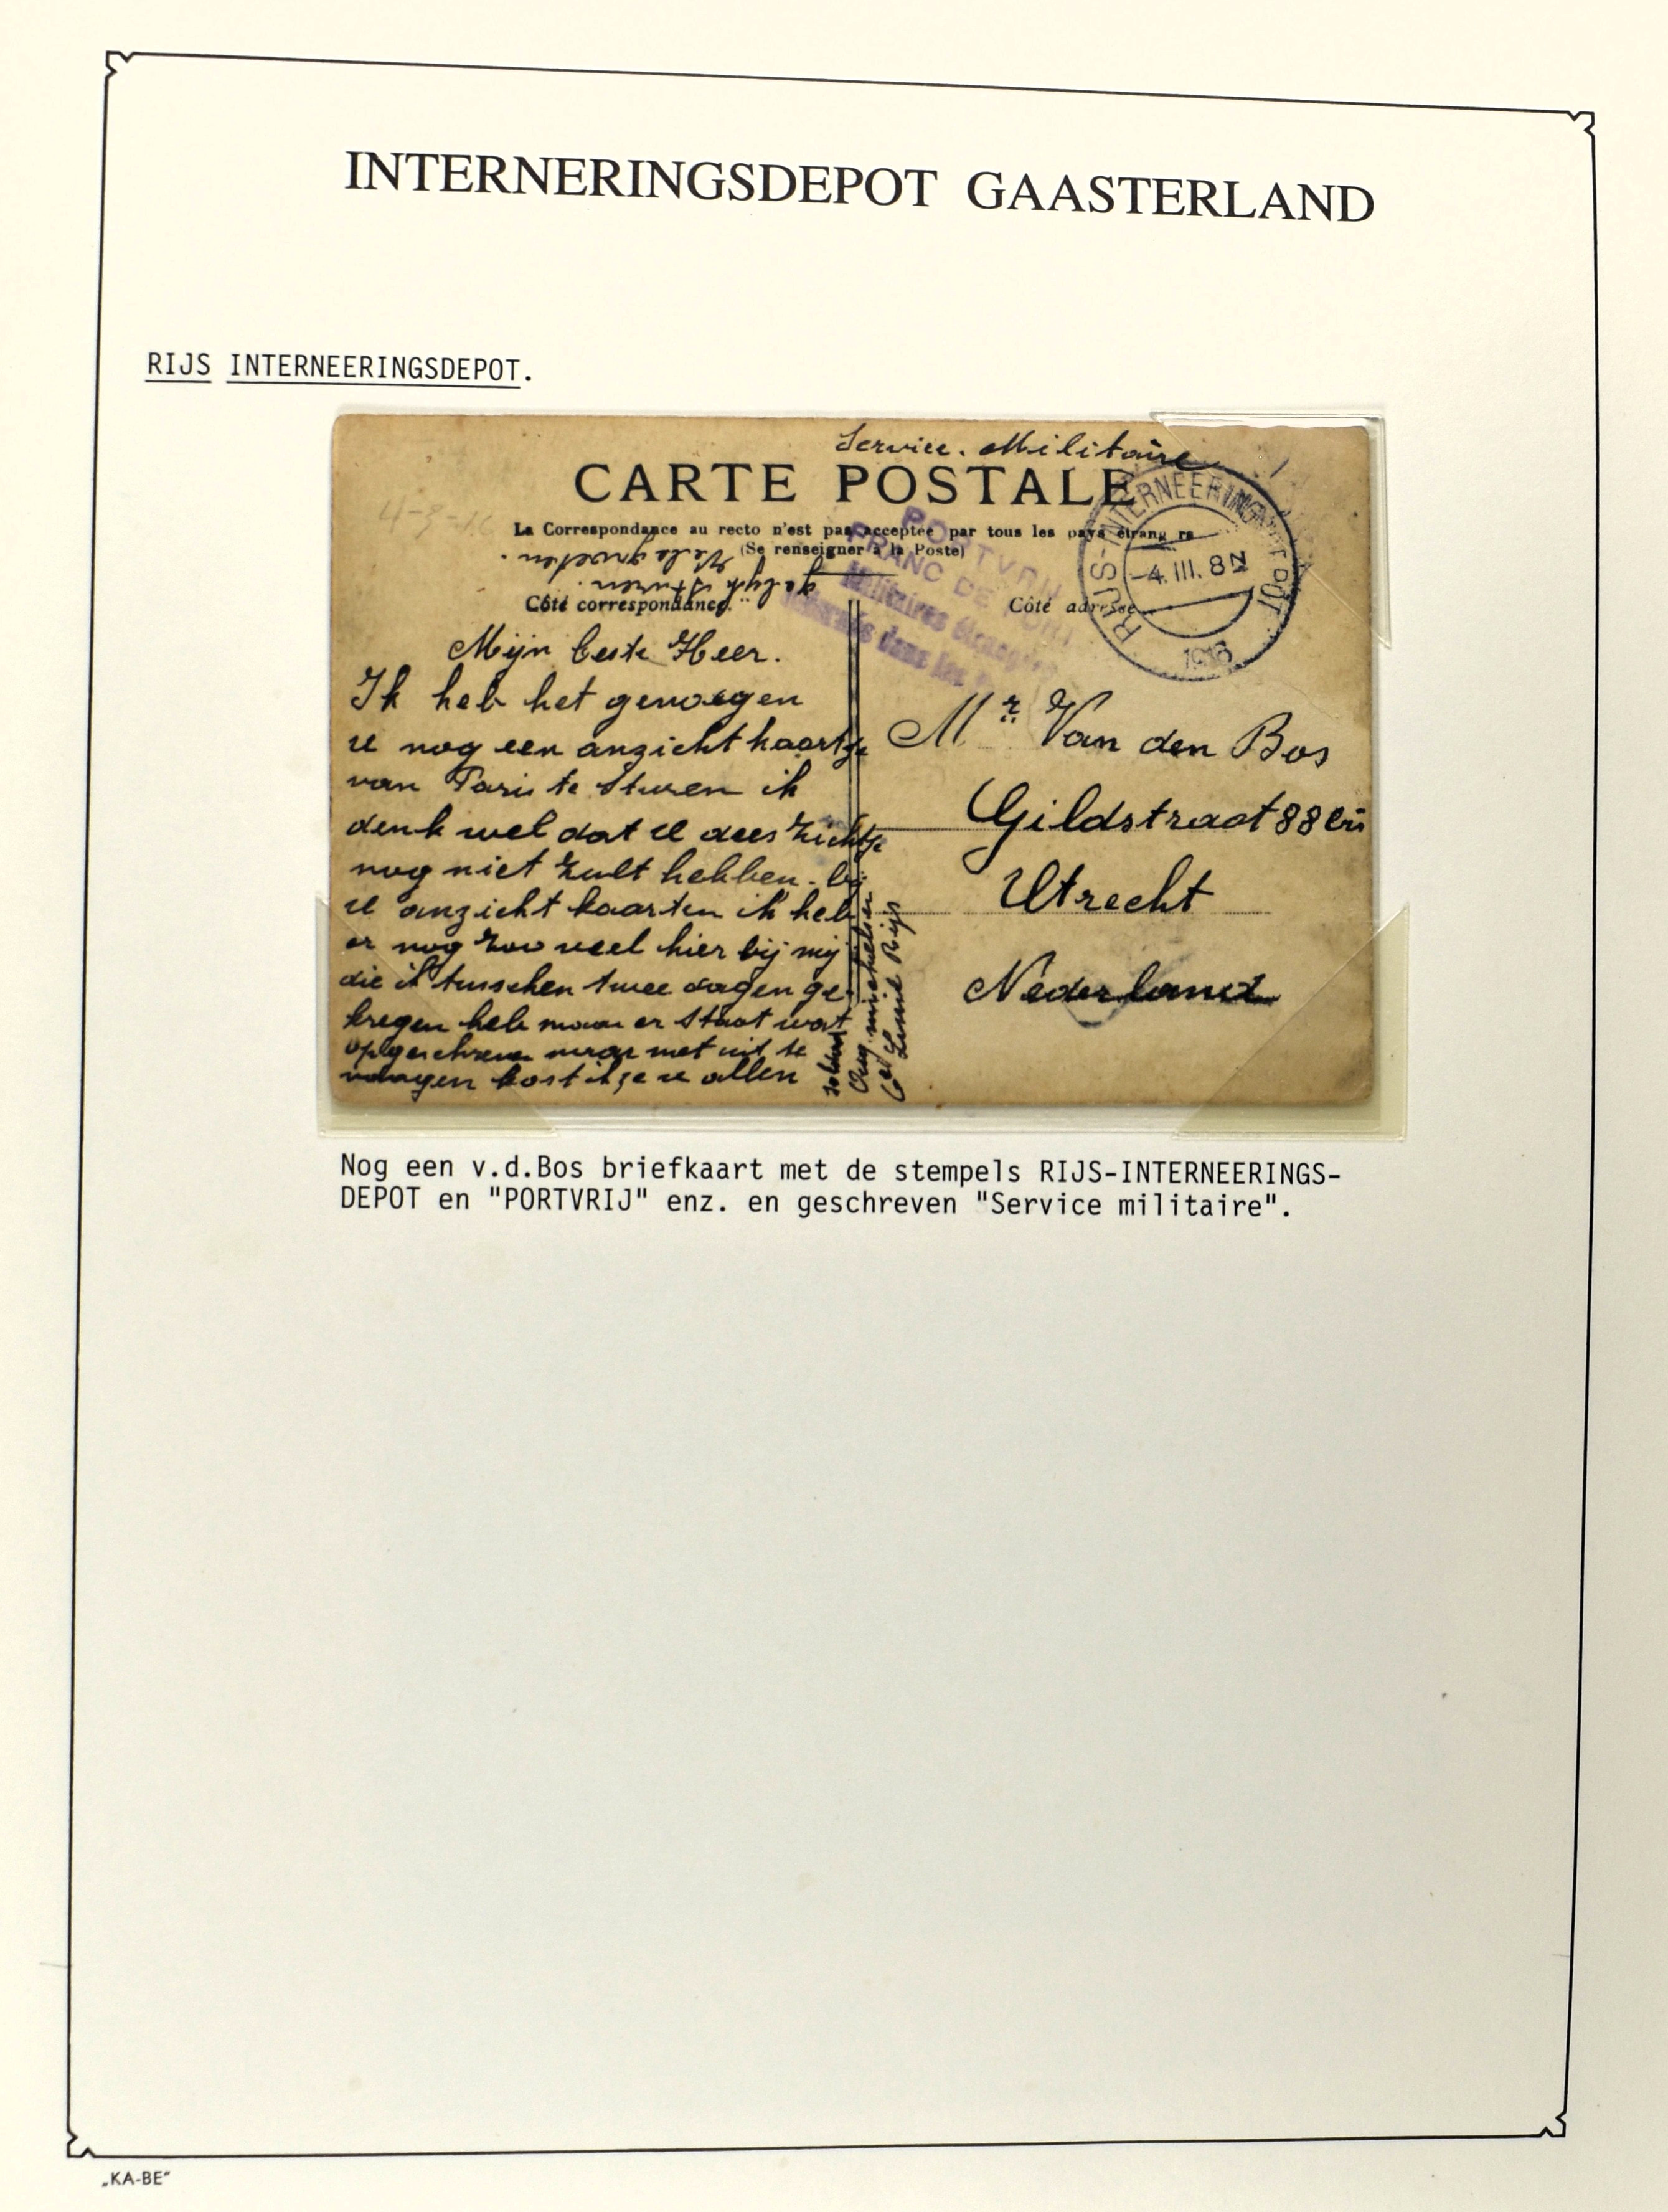 INTERNERINGSDEPOT GAASTERLAND
RIJS INTERNEERINGSDEPOT.
Service. Militaire
CARTE POSTALE
La Correspondance au recto n'est pas acceptée par tous les pays étrang rs
(Se renseigner à la Poste)
Côté correspondance.
Côté adresse
PORTVRIJ
FRANC DE PORT
Militaires étrangers
internés dans les
RIJS-INTERNEERINGSDEPOT
-4.III. 8 N
1916
4-3-16
Mijn beste Heer.
Ik heb het genoegen
U nog een anzicht kaartje
van Paris te Sturen ik
denk wel dat U dees zichtje
nog niet zult hebben. bij
U anzicht kaarten ik heb
er nog zoo veel hier bij mij
die ik tusschen twee dagen ge
kregen heb maar er Staat wat
opgeschreven maar met uit te
kost ik ze U allen
gelijk Sturen.
Vele groeten.
soldaat
Rijs
Mr Van den Bos
Gildstraat 88 bis
Utrecht
Nederland
Nog een v.d.Bos briefkaart met de stempels RIJS-INTERNEERINGS-
DEPOT en "PORTVRIJ" enz. en geschreven "Service militaire".
„KA-BE"